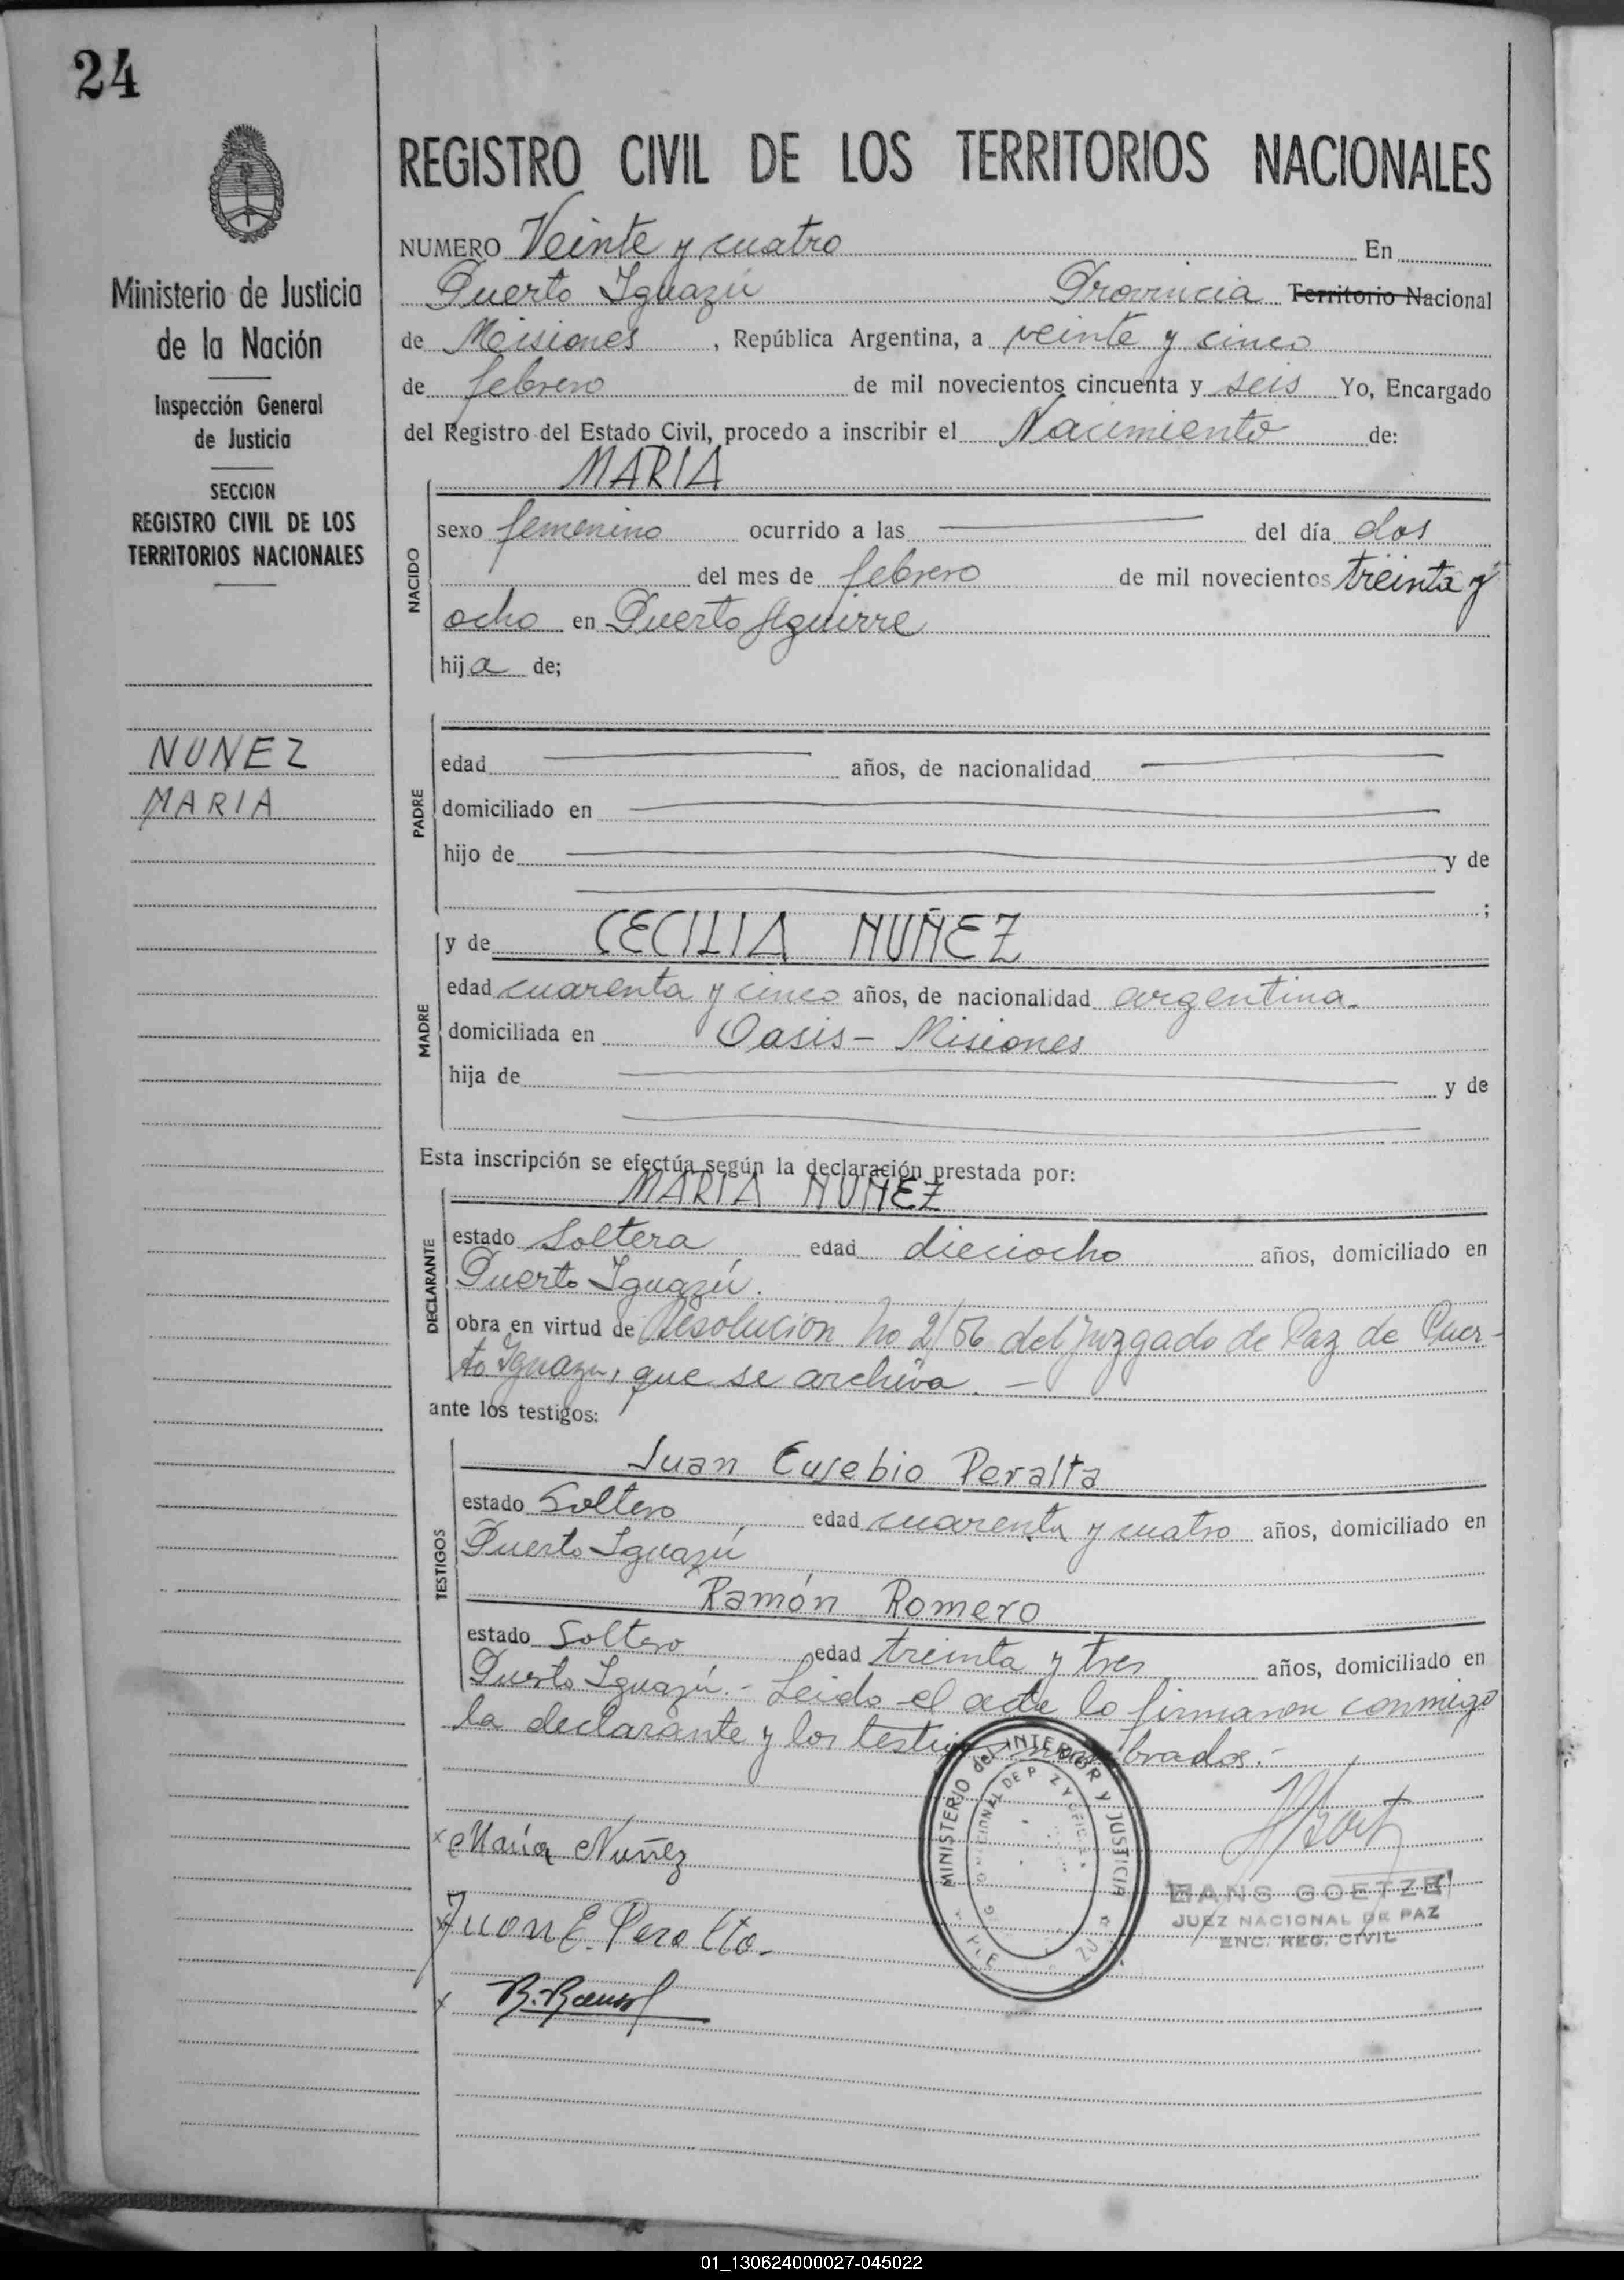 24
Ministerio de Justicia
de la Nación
Inspección General
de Justicia
SECCION
REGISTRO CIVIL DE LOS
TERRITORIOS NACIONALES
NUÑEZ
MARIA
REGISTRO CIVIL DE LOS TERRITORIOS NACIONALES
NUMERO Veinte y cuatro En
Puerto Iguazú Provincia Territorio Nacional
de Misiones, República Argentina, a veinte y cinco
de febrero de mil novecientos cincuenta y seis Yo, Encargado
del Registro del Estado Civil, procedo a inscribir el Nacimiento de:
MARIA
NACIDO
sexo femenino ocurrido a las del día dos
del mes de febrero de mil novecientos treinta y
ocho en Puerto Aguirre
hija de;
PADRE
edad años, de nacionalidad
domiciliado en
hijo de y de
;
MADRE
y de CECILIA NUÑEZ
edad cuarenta y cinco años, de nacionalidad argentina.
domiciliada en Oasis - Misiones
hija de y de
Esta inscripción se efectúa según la declaración prestada por:
MARIA NUÑEZ
DECLARANTE
estado Soltera edad dieciocho años, domiciliado en
Puerto Iguazú.
obra en virtud de Resolución No 2/56 del Juzgado de Paz de Puer-
to Iguazu, que se archiva. -
ante los testigos:
TESTIGOS
Juan Eusebio Peralta
estado Soltero edad cuarenta y cuatro años, domiciliado en
Puerto Iguazú
Ramón Romero
estado Soltero edad treinta y tres años, domiciliado en
Puerto Iguazú. - Leido el acta lo firmaron conmigo
la declarante y los testigos nombrados. -
MINISTERIO del INTERIOR Y JUSTICIA
María Nuñez
Juan E. Peralta.
HANS GOETZE
JUEZ NACIONAL DE PAZ
ENC. REG. CIVIL
01_130624000027-045022